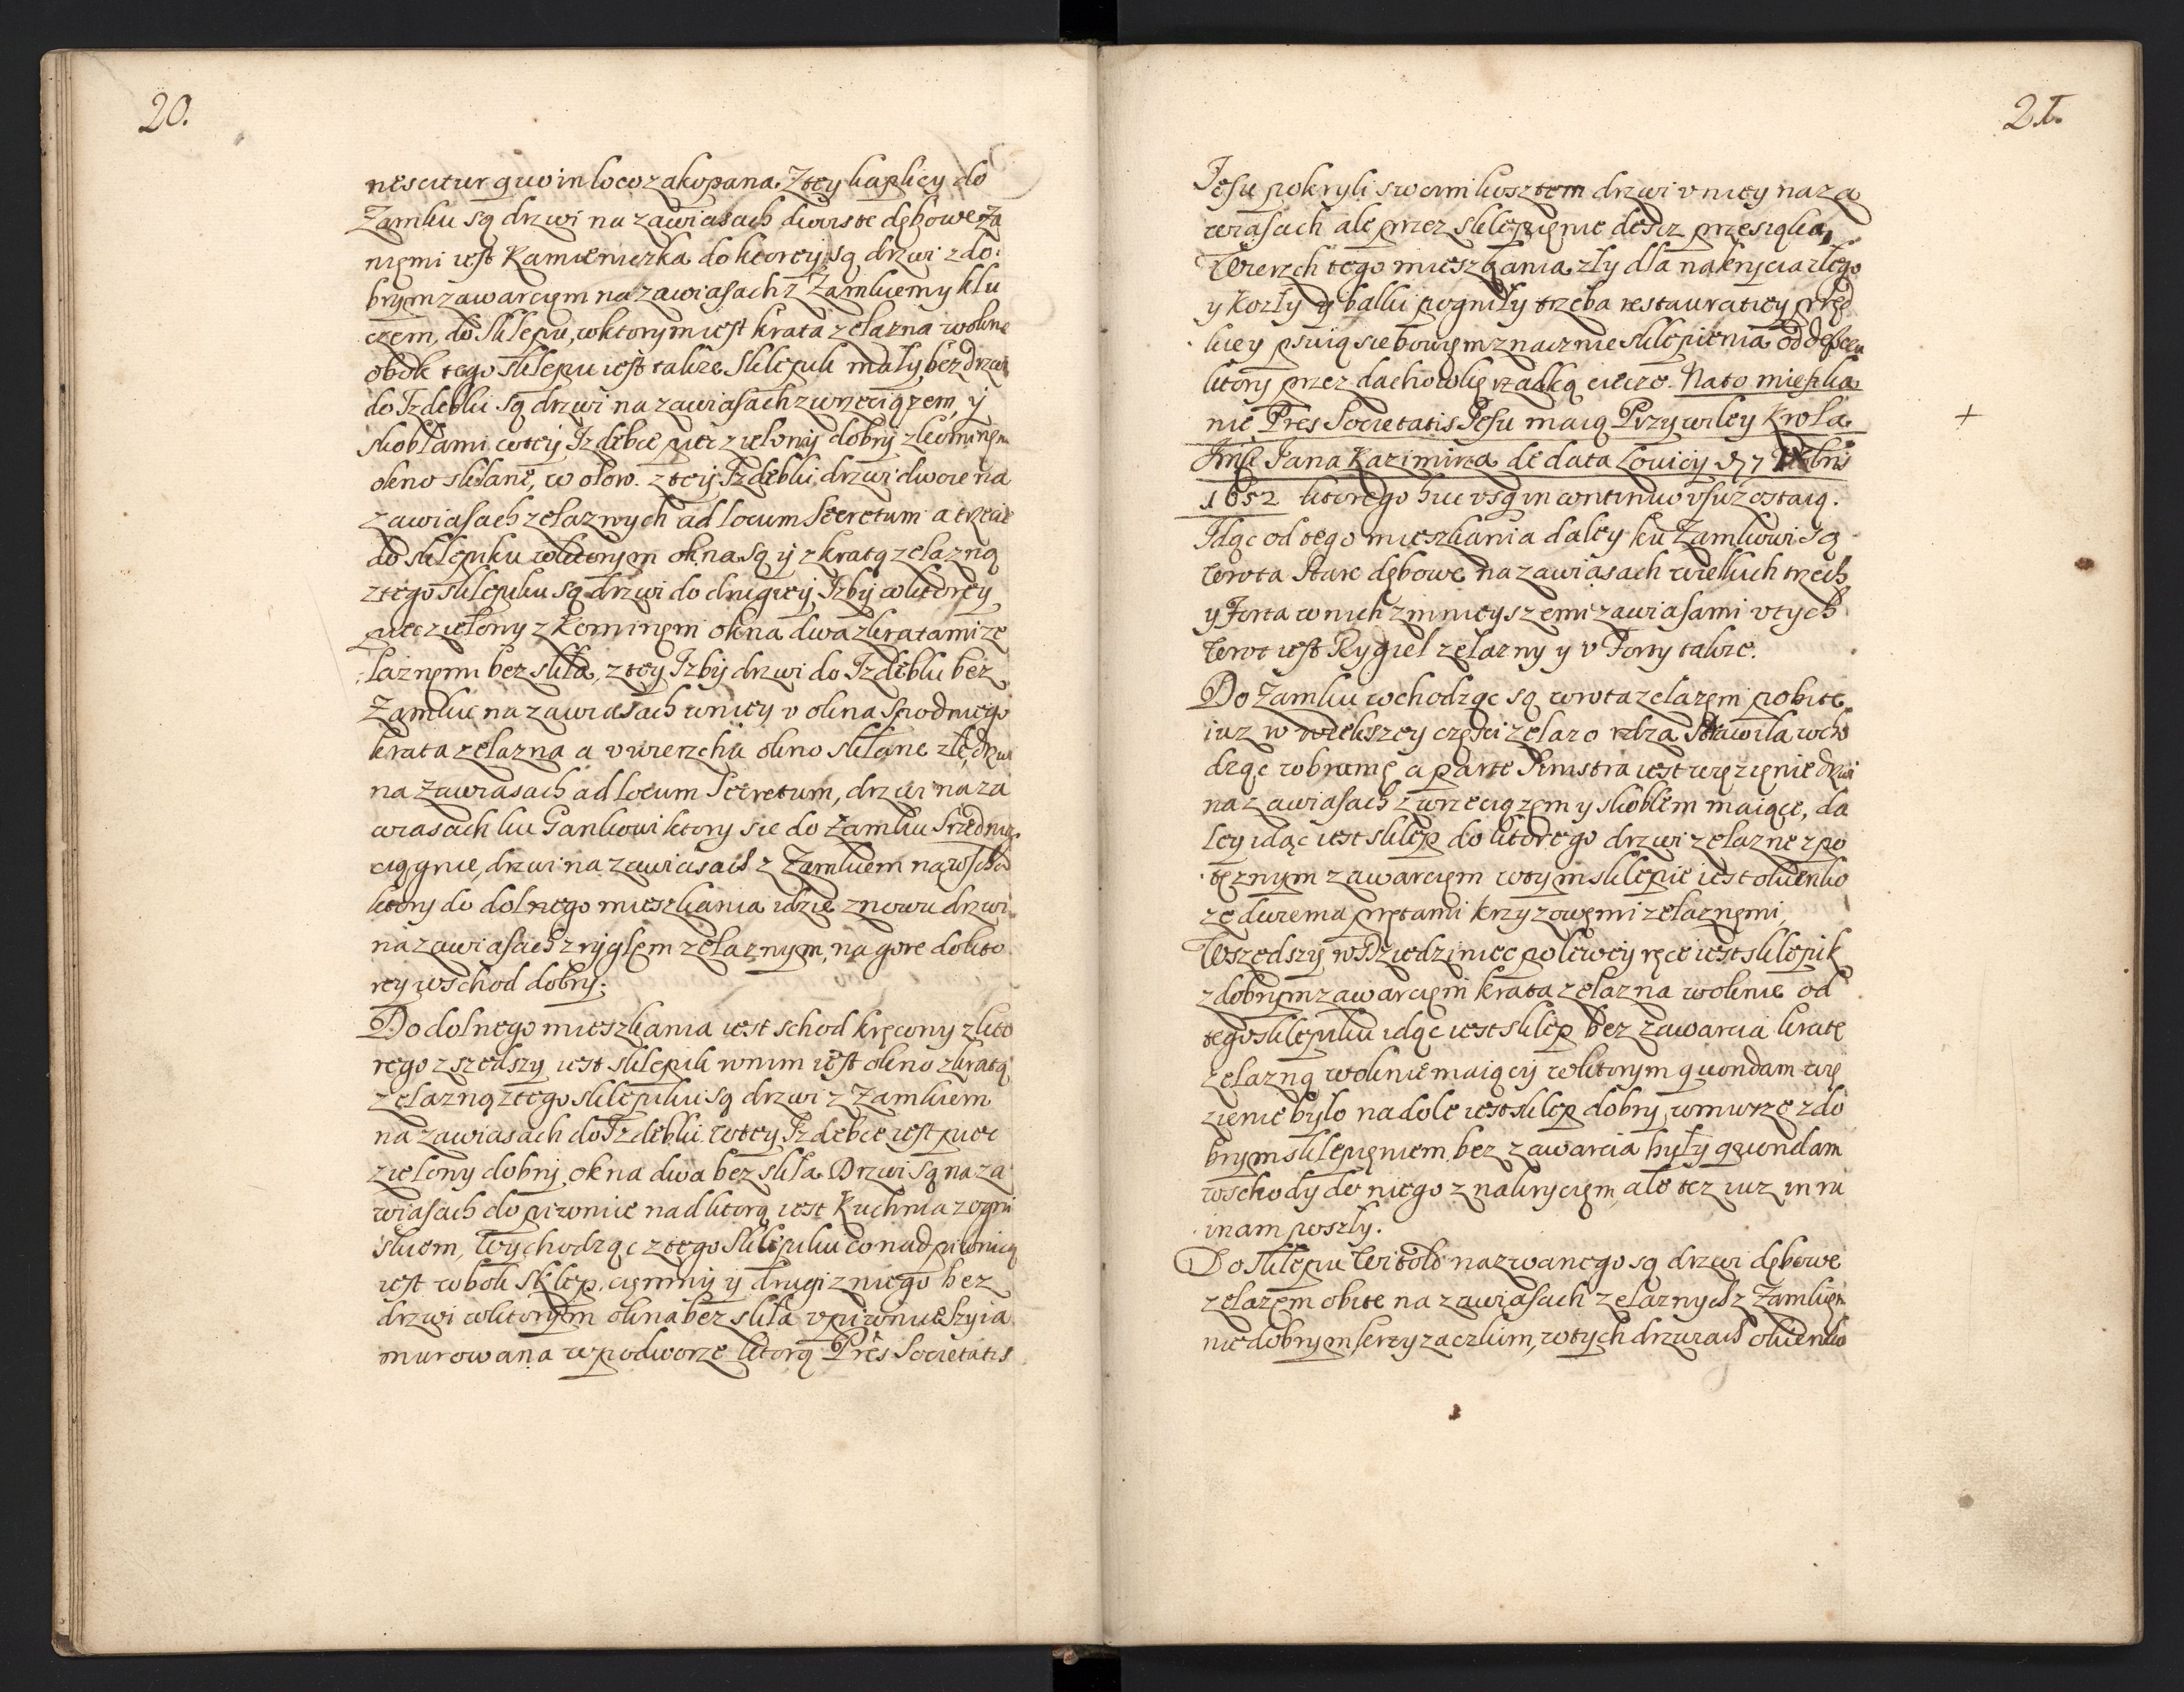 20.
nescitur quo in loco zakopana. Z tey kaplicy do
Zamku są drzwi na zawiasach dwoiste dębowe za
niemi iest Kamieniczka do ktorey są drzwi z do:
brym zawarciem na zawiasach z Zamkiem y klu
czem, do sklepu, w ktorym iest krata zelazna w oknie
obok tego sklepu iest takze Sklepik mały bez drzwi
do Izdebki są drzwi na zawiasach z wrzeciązem, y
skoblami w tey Izdebce piec zielony dobry z kominem
okno sklane, w ołow. z tey Izdebki drzwi dwoie na
zawiasach zelaznych ad locum Secretum a trzecie
do sklepiku w ktorym okna są y z kratą zelazną
z tego sklepiku są drzwi do drugiey Izby w ktorey
piec zielony z Kominem okna dwa z kratami ze
laznemi bez skła, z tey Izby drzwi do Izdebki bez
Zamku na zawiasach w niey v okna spodniego
krata zelazna a v wierzchu okno sklane złe, drzwi
na zawiasach ad locum Secretum, drzwi na za
wiasach ku Gankowi ktory sie do zamku srzednie
ciągnie, drzwi na zawiasach z Zamkiem na wschod
ktory do dolnego mieszkania idzie znowu drzwi
na zawiasach z ryglem zelaznym, na gore do kto
rey wschod dobry.
Do dolnego mieszkania iest schod kręcony z kto
rego zszedszy iest sklepik w nim iest okno z kratą
zelazną z tego sklepiku są drzwi z Zamkiem
na zawiasach do Izdebki w tey Izdebce iest piec
zielony dobry, okna dwa bez skła Drzwi są na za
wiasach do piwnice nad ktorą iest Kuchnia z ogni
skiem, Wychodząc z tego Sklepiku co nad piwnicą
iest w bok Sklep, ciemny y drugi z niego bez
drzwi w ktorym okna bez skła v piwnice szyia
murowana w podworze ktorą Pres Societatis
21.
Jesu pokryli swoim kosztem drzwi v niey na za
wiasach ale przez sklepienie descz przesiąka,
Wierzch tego mieszkania zły dla nakrycia złego
y kozły y balki pogniły trzeba restauratiey pręd
kiey psuią sie bowiem znacznie sklepienia od descu
ktory przez dachowkę rzadką ciecze. Na to mieszka
nie Pres Societatis Jesu maią Przywiley Krola
Jana Kazimirza de data Lovicy 7
1652 ktorego huc vsq in continuo vsu zostaią.
Idąc od tego mieszkania daley ku Zamkowi są
wrota stare dębowe na zawiasach wielkich trzech
y Forta w nich z mnieyszemi zawiasami v tych
wrot iest Rygiel zelazny y v Forty takze.
Do Zamku wchodząc są wrota zelazem pobite
iuz w wiekszey części zelazo rdza strawiła wcho
dząc w bramę a parte Sinistra iest więzienie drzwi
na zawiasach z wrzeciązem y skoblem maiące, da
ley idąc iest sklep do ktorego drzwi zelazne z po
tęznym zawarciem w tym sklepie iest okienko
ze dwiema prętami krzyzowemi zelaznemi,
Wszedszy w Dziedziniec po lewey ręce iest sklepik
z dobrym zawarciem krata zelazna w oknie od
tego sklepiku idąc iest sklep bez zawarcia kratę
zelazną w oknie maiący w ktorym quondam wię
zienie było na dole iest sklep dobry w murze z do
brym sklepieniem bez zawarcia były quondam
wschody do niego z nakryciem, ale tez iuz in ru
inam poszły.
Do Sklepu Witolt nazwanego są drzwi dębowe
zelazem obite na zawiasach zelaznych z Zamkiem
niedobrym, y zaczkim, w tych drzwiach okienko